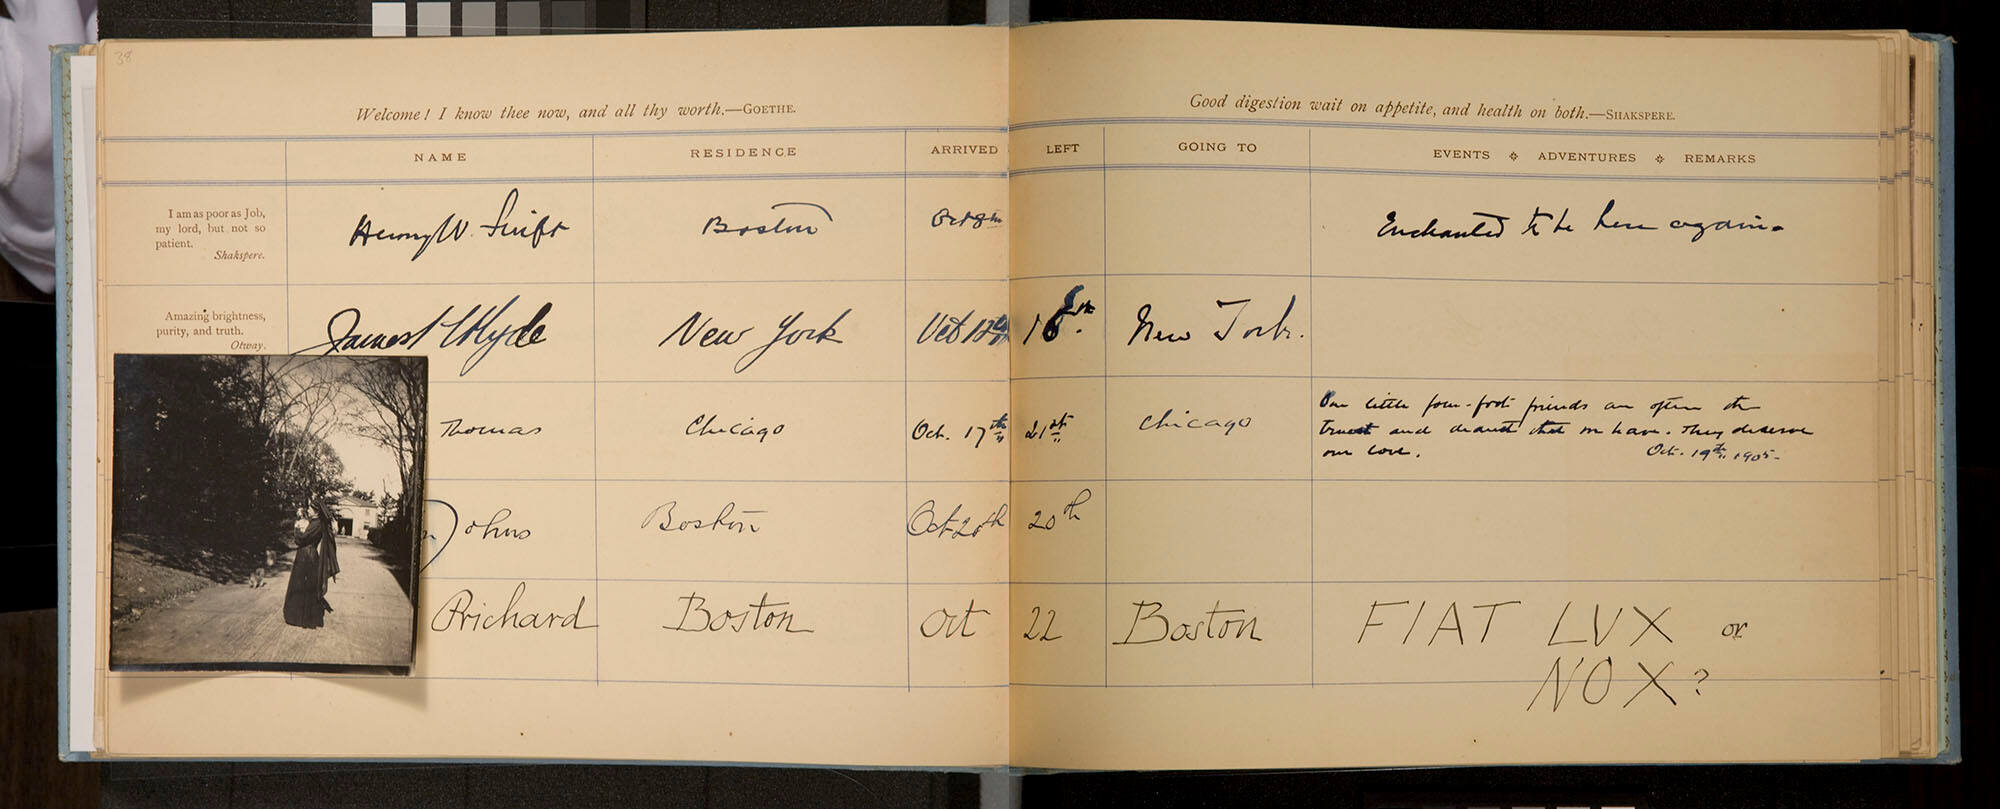 38
Welcome! I know thee now, and all thy worth.—GOETHE.
Good digestion wait on appetite, and health on both.—SHAKSPERE.
NAME RESIDENCE ARRIVED LEFT GOING TO EVENTS ADVENTURES REMARKS
I am as poor as Job,
my lord, but not so
patient.
Shakspere.
Henry W. Swift Boston Oct 8th Enchanted to be here again.
Amazing brightness,
purity, and truth.
Otway.
James H Hyde New York Oct 18th New York.
Thomas Chicago Oct. 17th 21st Chicago
Our little four-foot friends are often the
truest and dearest that we have. They deserve
our love. Oct. 19th, 1905-
Johns Boston Oct 20th 20th
Prichard Boston Oct 22 Boston FIAT LUX or
NOX?